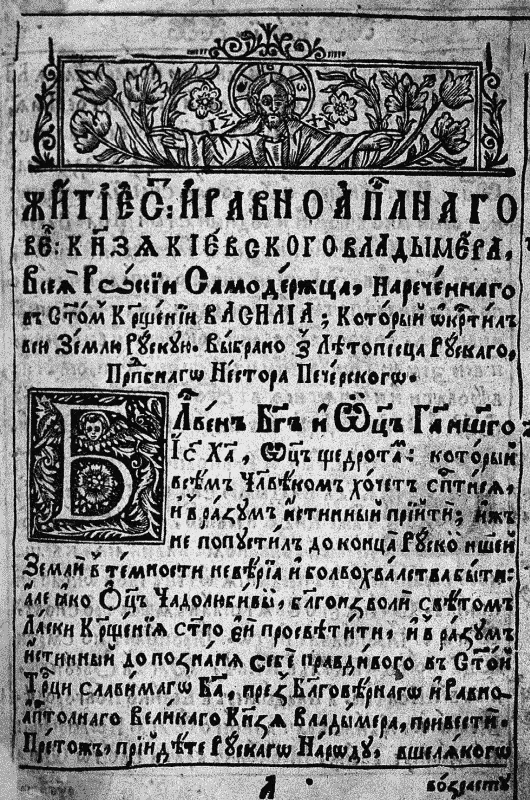 ЖИТІЕ С: И РАВНОАПЛНАГО
ВЕ: КНЗѦ КІЕВСКОГО ВЛАДЫМЕРА,
Всеѧ Рѡссіи Самодержца, Нареченнаго
въ Стом Крщеніи ВАСИЛІА; Который ѡкртилъ
всю Землю Рꙋскую. Выбрано з Лѣтописца Рꙋскаго,
Прпбнагѡ Нестора Печерскогѡ.
Блвенъ Бгъ и Ѿцъ Га ншго
Іс Ха, Ѿцъ щедротъ: который
всѣмъ Члвѣкомъ хочетъ сптисѧ,
и в разумъ истинный прійти; ижъ
не попустилъ до конца Рꙋскои ншей
Земли в темности невѣріа и болвохвалства быти:
але ꙗко Оцъ Чадолюбивы, блгоизволи свѣтомъ
Ласки Крщеніѧ стго еи просвѣтити, и в разумъ
истинный до познанѧ себе правдивого въ Стой
Трци славимагѡ Ба, през Блговѣрнагѡ и Равно-
аптолнаго Великаго Кнзѧ Владымера, привести.
Претожъ, прійдѣте Рꙋскагѡ Народꙋ, вшелѧкогѡ
возрастꙋ